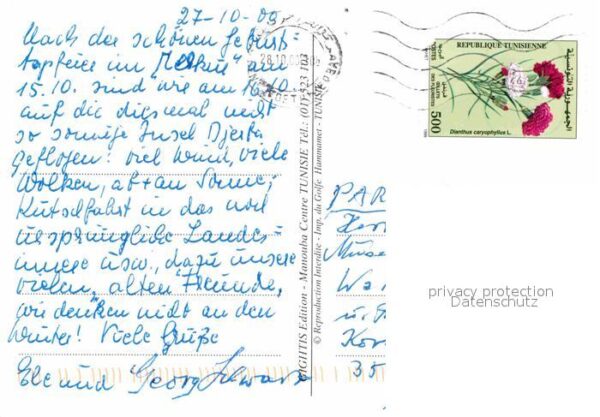 27-10-09
Nach der schönen Geburts=
tagsfeier im "Merkur" am
15.10. sind wir am 16.10.
auf die diesmal nicht
so sonnige Insel Djerba
geflogen! viel Wind, viele
Wolken, ab + an Sonne;
Kutschfahrt in das noch
ursprüngliche Landes=
innere usw., dazu unsere
vielen "alten" Freunde,
wir denken nicht an den
Winter! Viele Grüße
und Georg Schwarz
GIGHTIS Edition - Manouba Centre TUNISIE Tél.: (01) 523 103
© Reproduction Interdite - Imp. du Golfe Hammamet - TUNISIE
REPUBLIQUE TUNISIENNE
الجمهورية التونسية
Dianthus caryophyllus L.
500
PAR
Muse
u.
35
privacy protection
Datenschutz